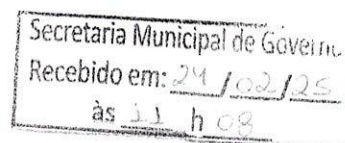 Secretaria Municipal de Governo
Recebido em: 24/02/25
às 11 h 08